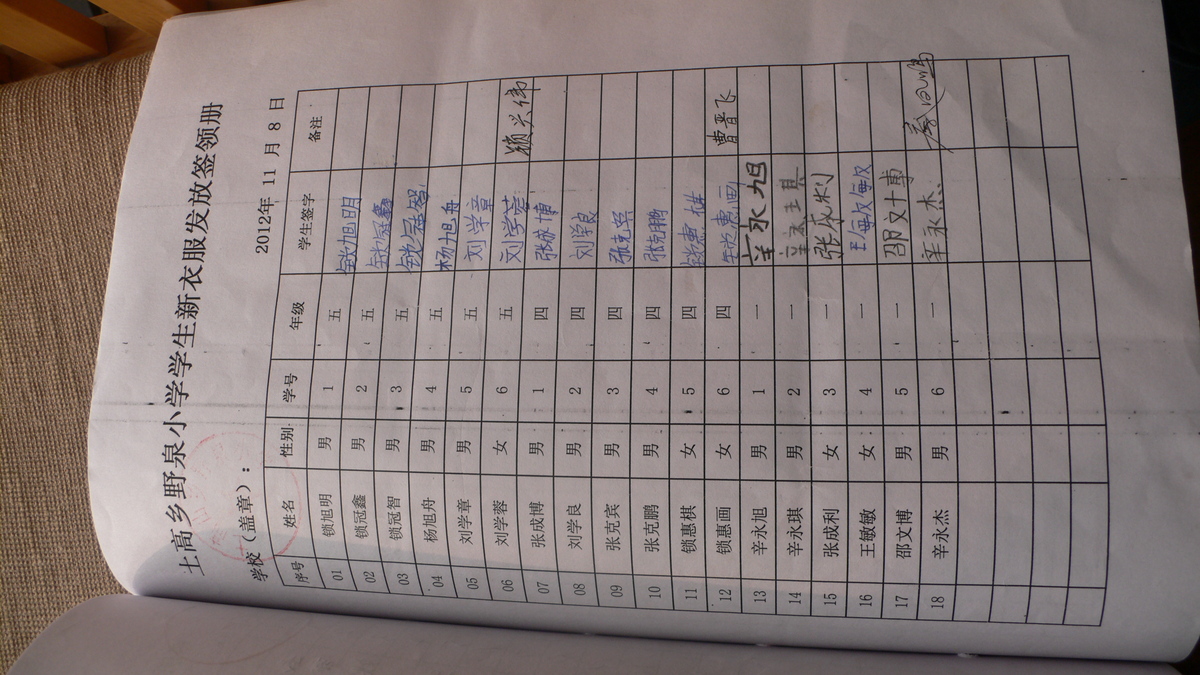 土高乡野泉小学学生新衣服发放签领册
学校（盖章）： 2012年 11 月 8 日
序号 姓名 性别 学号 年级 学生签字 备注
01 锁旭明 男 1 五 锁旭明
02 锁冠鑫 男 2 五 锁冠鑫
03 锁冠智 男 3 五 锁冠智
04 杨旭舟 男 4 五 杨旭舟
05 刘学章 男 5 五 刘学章
06 刘学蓉 女 6 五 刘学蓉
07 张成博 男 1 四 张成博
08 刘学良 男 2 四 刘学良
09 张克宾 男 3 四 张克宾
10 张克鹏 男 4 四 张克鹏
11 锁惠棋 女 5 四 锁惠棋
12 锁惠画 女 6 四 锁惠画 曹晋飞
13 辛永旭 男 1 一 辛永旭
14 辛永琪 男 2 一 辛永琪
15 张成利 女 3 一 张成利
16 王敏敏 女 4 一 王敏敏
17 邵文博 男 5 一 邵文博
18 辛永杰 男 6 一 辛永杰